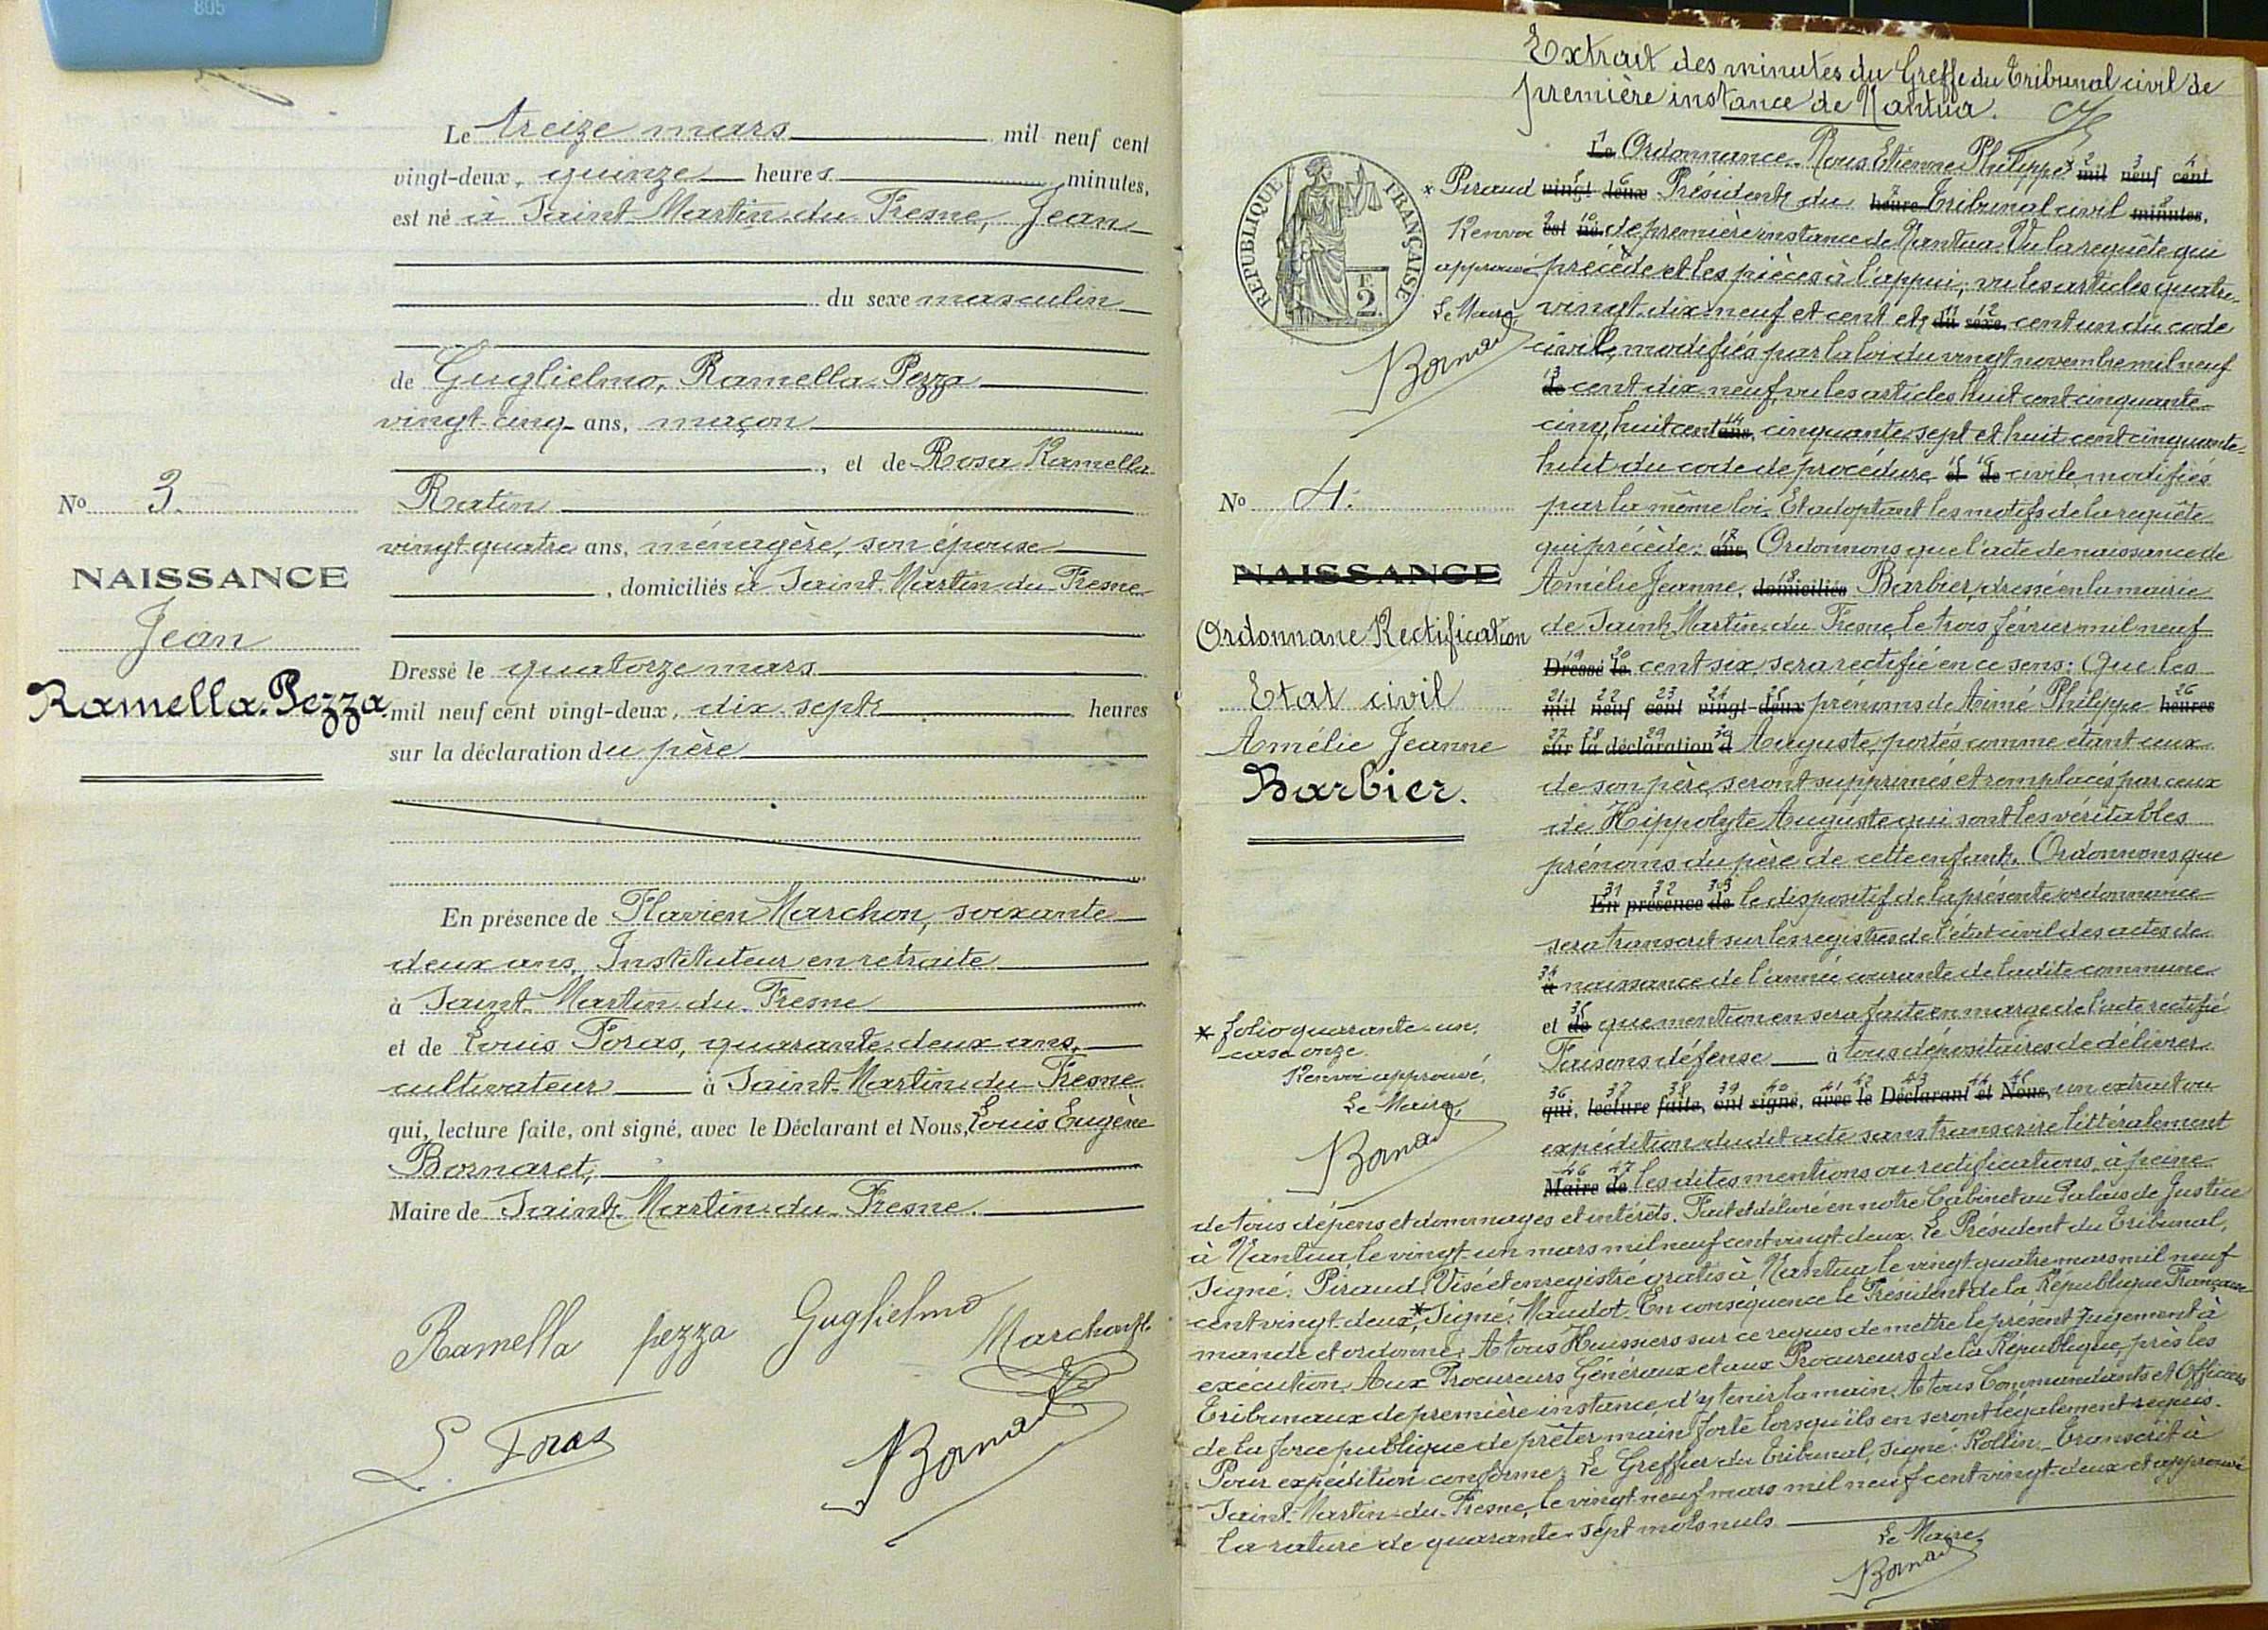 805
Le treize mars mil neuf cent
vingt-deux, quinze heures minutes,
est né à Saint-Martin-du-Fresne, Jean
du sexe masculin
de Guglielmo, Ramella-Pezza
vingt-cinq ans, maçon
, et de Rosa Ramella
Ratin
vingt-quatre ans, ménagère, son épouse
, domiciliés à Saint-Martin-du-Fresne
Dressé le quatorze mars
mil neuf cent vingt-deux, dix-sept heures
sur la déclaration du père
En présence de Flavien Marchon, soixante
deux ans, Instituteur en retraite
à Saint-Martin-du-Fresne
et de Louis Foras, quarante-deux ans,
cultivateur à Saint-Martin-du-Fresne
qui, lecture faite, ont signé, avec le Déclarant et Nous, Louis Eugène
Bornaret,
Maire de Saint-Martin-du-Fresne.
Nº 3.
NAISSANCE
Jean
Ramella-Pezza.
Ramella pezza Guglielmo
L. Foras
Extrait des minutes du Greffe du Tribunal civil de
première instance de Nantua.
1 Le Ordonnance. Nous Etienne Philippe x 2 mil 3 neuf 4 cent
5 vingt 6 deux Président du 7 heure Tribunal civil 8 minutes,
9 est 10 né de première instance de Nantua. Vu la requête qui
précède et les pièces à l'appui; vu les articles quatre-
vingt-dix-neuf et cent et 11 du 12 sexe cent un du code
civil, modifiés par la loi du vingt novembre mil neuf
13 de cent dix-neuf, vu les articles huit cent cinquante-
cinq, huit cent 14 ans, cinquante-sept et huit cent cinquante-
huit du code de procédure 15 et 16 de civile modifiés
par la même loi. Et adoptant les motifs de la requête
qui précède: 17 ans, Ordonnons que l'acte de naissance de
Amélie Jeanne, 18 domiciliés Barbier, dressé en la mairie
de Saint-Martin-du-Fresne, le trois février mil neuf
19 Dressé 20 le cent six, sera rectifié en ce sens: Que les
21 mil 22 neuf 23 cent 24 vingt-25 deux prénoms de Aimé Philippe 26 heures
27 sur 28 la 29 déclaration 30 d Auguste, portés comme étant ceux
de son père, seront supprimés et remplacés par ceux
de Hippolyte Auguste qui sont les véritables
prénoms du père de cette enfant. Ordonnons que
31 En 32 présence 33 de le dispositif de la présente ordonnance
sera transcrit sur les registres de l'état civil des actes de
34 à naissance de l'année courante de ladite commune
et 35 de que mention en sera faite en marge de l'acte rectifié
Faisons défense à tous dépositaires de délivrer
36 qui, 37 lecture 38 faite, 39 ont 40 signé, 41 avec 42 le 43 Déclarant 44 et 45 Nous, un extrait ou
expédition dudit acte sans transcrire littéralement
46 Maire 47 de lesdites mentions ou rectifications, à peine
de tous dépens et dommages et intérêts. Fait et délivré en notre Cabinet au Palais de Justice
à Nantua, le vingt-un mars mil neuf cent vingt-deux. Le Président du Tribunal,
Signé: Piraud. Visé et enregistré gratis à Nantua le vingt-quatre mars mil neuf
cent vingt-deux,* Signé: Naudot. En conséquence le Président de la République Française
mande et ordonne: A tous Huissiers sur ce requis de mettre le présent Jugement à
exécution. Aux Procureurs Généraux et aux Procureurs de la République, près les
Tribunaux de première instance, d'y tenir la main. A tous Commandants et Officiers
de la force publique de prêter main forte lorsqu'ils en seront légalement requis.
Pour expédition conforme: Le Greffier du Tribunal, signé: Rollin. Transcrit à
Saint-Martin-du-Fresne, le vingt-neuf mars mil neuf cent vingt-deux et approuvé
la rature de quarante-sept mots nuls
Le Maire,
REPUBLIQUE FRANÇAISE
F
2
x Piraud
Renvoi
approuvé
Le Maire
Nº 4.
NAISSANCE
Ordonnane Rectification
Etat civil
Amélie Jeanne
Barbier.
* folio quarante-un,
case onze.
Renvoi approuvé,
Le Maire,